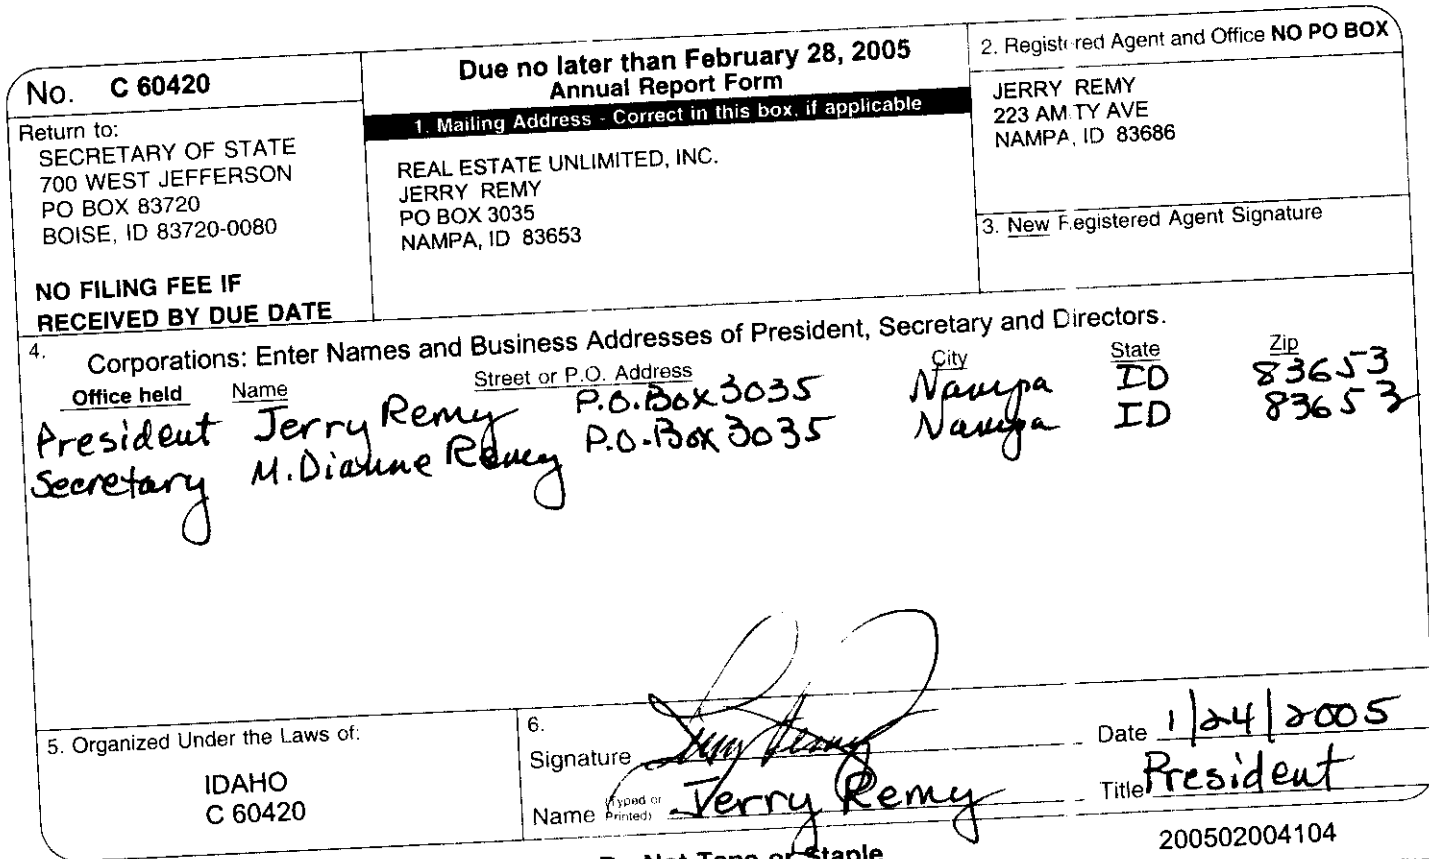 No. C 60420
Return to:
SECRETARY OF STATE
700 WEST JEFFERSON
PO BOX 83720
BOISE, ID 83720-0080
NO FILING FEE IF
RECEIVED BY DUE DATE
Due no later than February 28, 2005
Annual Report Form
1. Mailing Address - Correct in this box, if applicable
REAL ESTATE UNLIMITED, INC.
JERRY REMY
PO BOX 3035
NAMPA, ID 83653
2. Registered Agent and Office NO PO BOX
JERRY REMY
223 AMITY AVE
NAMPA, ID 83686
3. New Registered Agent Signature
4. Corporations: Enter Names and Business Addresses of President, Secretary and Directors.
Office held Name Street or P.O. Address City State Zip
President Jerry Remy P.O. Box 3035 Nampa ID 83653
Secretary M. Dianne Remy P.O. Box 3035 Nampa ID 83653
5. Organized Under the Laws of:
IDAHO
C 60420
6.
Signature Jerry Remy Date 1/24/2005
Name (Typed or Printed) Jerry Remy Title President
Do Not Tape or Staple
200502004104